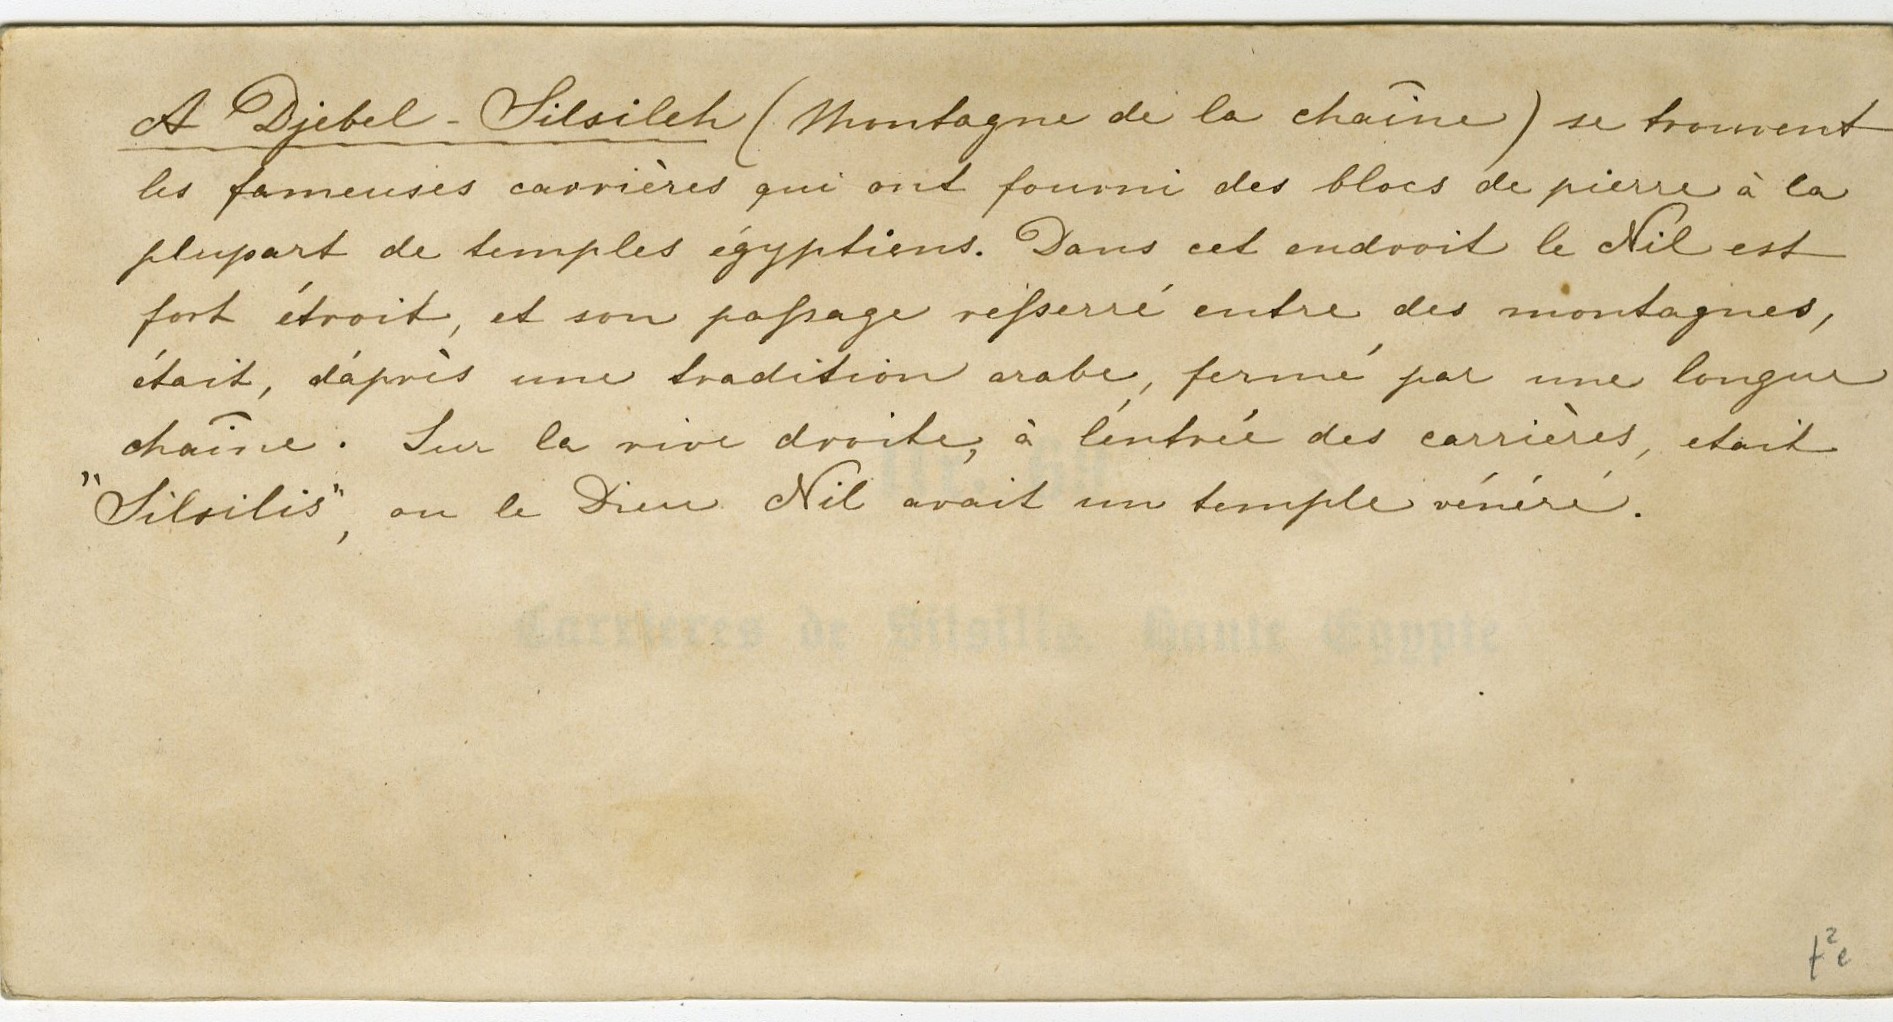 A Djebel - Silsileh (Montagne de la chaîne) se trouvent
les fameuses carrières qui ont fourni des blocs de pierre à la
plupart de temples égyptiens. Dans cet endroit le Nil est
fort étroit, et son passage resserré entre des montagnes,
était, d'après une tradition arabe, fermé par une longue
chaîne. Sur la rive droite, à l'entrée des carrières, etait
"Silsilis", ou le Dieu Nil avait un temple vénéré.
Carrieres de Silsilis. Haute Egypte